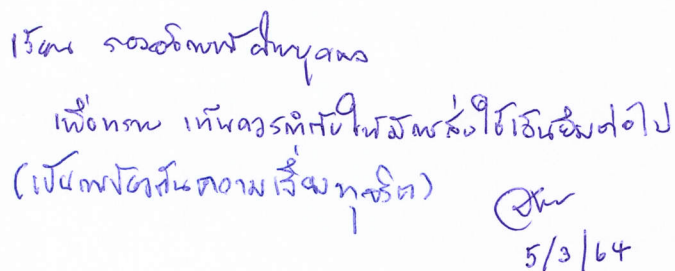 เรียน รองอธิการฝ่ายบุคคล
เพื่อทราบ เห็นควรกำกับให้มีการส่งใช้เงินยืมต่อไป
(เป็นการป้องกันความเสี่ยงทุจริต)
5/3/64